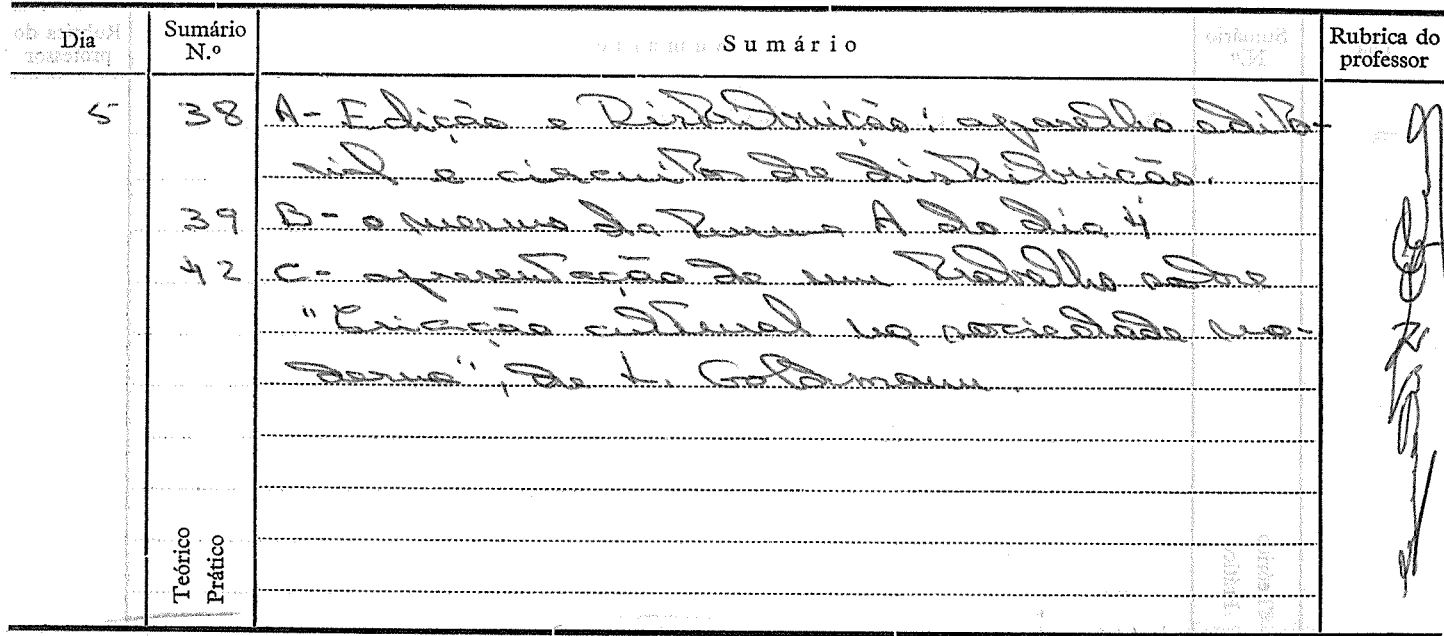 Dia
Sumário N.º
Sumário
Rubrica do professor
5 38 A- Edição e Distribuição: aparelho edito-
rial e circuitos de distribuição.
39 B- o mesmo da turma A do dia 4
42 C- apresentação de um trabalho sobre
"Criação cultural na sociedade mo-
derna", de L. Goldmann.
Teórico
Prático